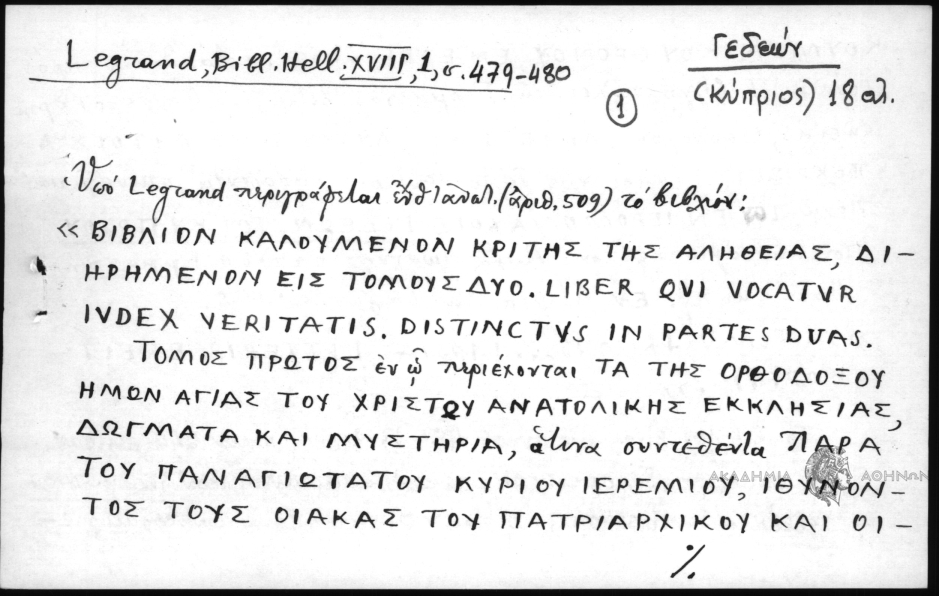 Legrand, Bibl. Hell. XVIII, 1, σ. 479-480
Γεδεών
(Κύπριος) 18 αἰ.
1
Ὑπό Legrand περιγράφεται (ἀριθ. 509) τό βιβλίον:
« ΒΙΒΛΙΟΝ ΚΑΛΟΥΜΕΝΟΝ ΚΡΙΤΗΣ ΤΗΣ ΑΛΗΘΕΙΑΣ, ΔΙ-
ΗΡΗΜΕΝΟΝ ΕΙΣ ΤΟΜΟΥΣ ΔΥΟ. LIBER QVI VOCATVR
IVDEX VERITATIS. DISTINCTVS IN PARTES DVAS.
ΤΟΜΟΣ ΠΡΩΤΟΣ ἐν ᾧ περιέχονται ΤΑ ΤΗΣ ΟΡΘΟΔΟΞΟΥ
ΗΜΩΝ ΑΓΙΑΣ ΤΟΥ ΧΡΙΣΤΩΥ ΑΝΑΤΟΛΙΚΗΣ ΕΚΚΛΗΣΙΑΣ,
ΔΩΓΜΑΤΑ ΚΑΙ ΜΥΣΤΗΡΙΑ, ἅτινα συντεθέντα ΠΑΡΑ
ΤΟΥ ΠΑΝΑΓΙΩΤΑΤΟΥ ΚΥΡΙΟΥ ΙΕΡΕΜΙΟΥ, ΙΘΥΝΟΝ-
ΤΟΣ ΤΟΥΣ ΟΙΑΚΑΣ ΤΟΥ ΠΑΤΡΙΑΡΧΙΚΟΥ ΚΑΙ ΟΙ-
ΑΚΑΔΗΜΙΑ ΑΘΗΝΩΝ
%.